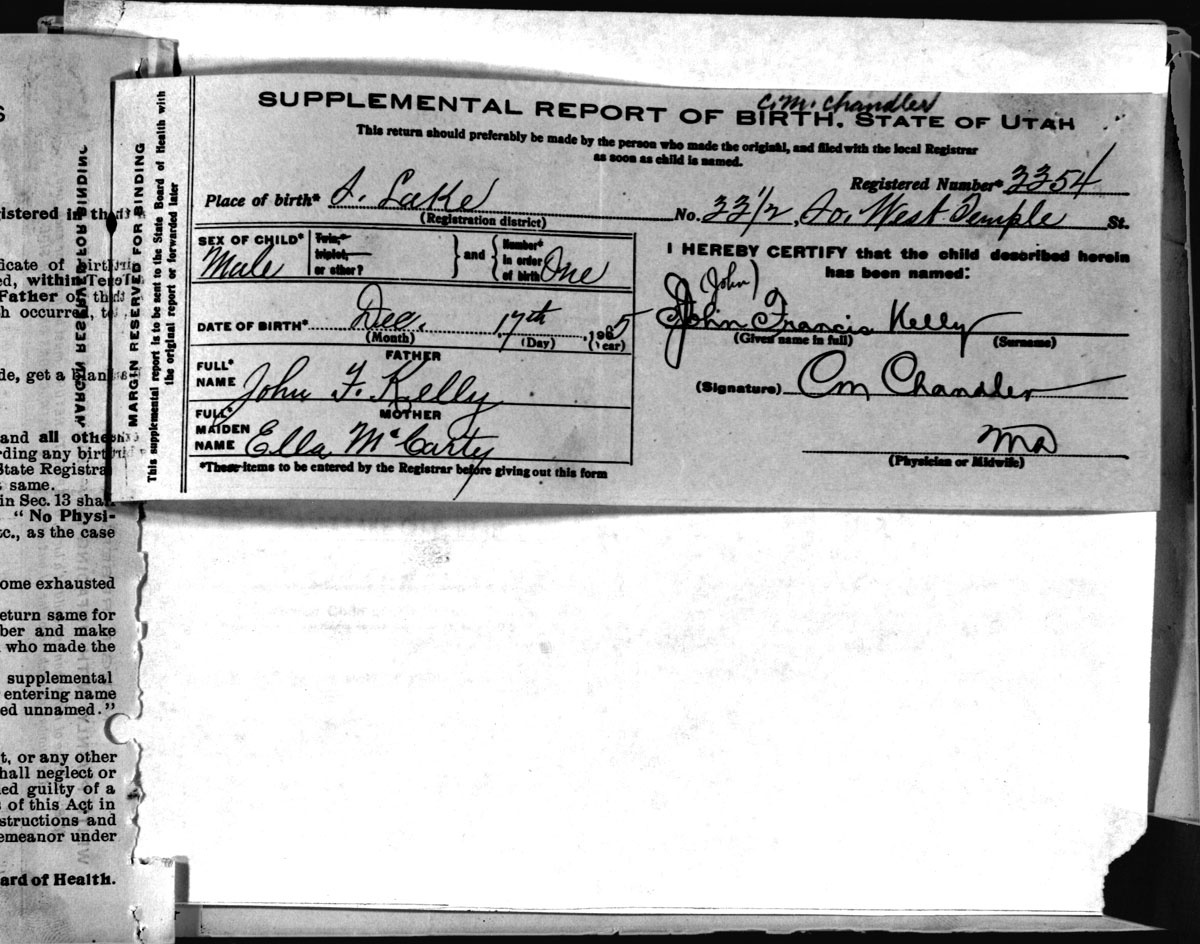 C. M. Chandler
SUPPLEMENTAL REPORT OF BIRTH. STATE OF UTAH
This return should preferably be made by the person who made the original, and filed with the local Registrar
as soon as child is named.
Registered Number* 3354
Place of birth* S. Lake No. 33 1/2, So. West Temple St.
(Registration district)
SEX OF CHILD* Male Twin,* triplet, or other? } and { Number* in order of birth One
DATE OF BIRTH* Dec. 17th, 1905
(Month) (Day) (Year)
FATHER
FULL* NAME John F. Kelly
MOTHER
FULL* MAIDEN NAME Ella McCarty
*These items to be entered by the Registrar before giving out this form
I HEREBY CERTIFY that the child described herein
has been named:
(John)
John Francis Kelly
(Given name in full) (Surname)
(Signature) CM Chandler
MD
(Physician or Midwife)
MARGIN RESERVED FOR BINDING
This supplemental report is to be sent to the State Board of Health with
the original report or forwarded later
MARGIN RESERVED FOR BINDING
6
istered in th
icate of birt
ed, within Te
Father of th
h occurred, t
de, get a blan
and all othe
rding any birt
State Registra
same.
in Sec. 13 shal
"No Physi-
tc., as the case
ome exhausted
eturn same for
ber and make
who made the
supplemental
entering name
ed unnamed."
t, or any other
hall neglect or
ed guilty of a
s of this Act in
structions and
emeanor under
ard of Health.